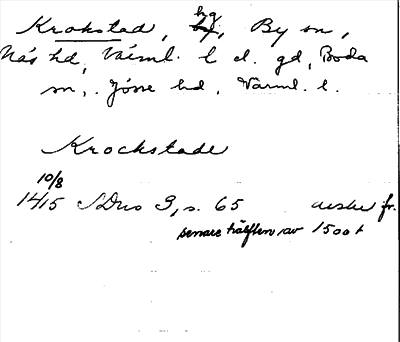 Krokstad, hg, By sn,
Näs hd, Värml. l el. gd, Boda
sn, Jösse hd, Värml. l.
Krockstade
10/8
1415 SDns 3, s. 65 avskr fr.
senare hälften av 1500 t